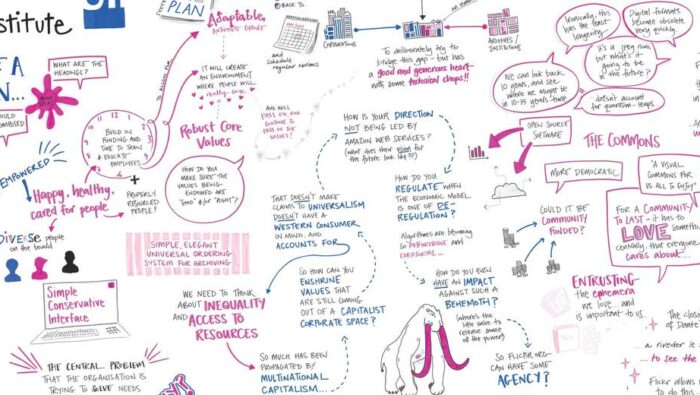 stitute
E A
N...
WHAT ARE THE
HEADINGS?
OULD
EMPOWERED
Happy, healthy,
cared for people
DIVERSE people
on the board
BUILD IN
FUNDING AND
TIME TO TRAIN
& EDUCATE
EMPLOYEES
+
PROPERLY
RESOURCED
PEOPLE?
PLAN
Adaptable,
IT WILL CREATE
AN ENVIRONMENT
WHERE PEOPLE WILL
really care.
Robust Core
Values
HOW DO YOU
MAKE SURE THE
VALUES BEING
ENSHRINED ARE
"GOOD" & for "RIGHT"?
AND WILL
PASS ON AND
CONTINUE TO
PASS ON THE
VALUES!
SIMPLE, ELEGANT
UNIVERSAL ORDERING
SYSTEM FOR ARCHIVING
Simple
Conservative
Interface
THE CENTRAL PROBLEM
THAT THE ORGANISATION IS
TRYING TO SOLVE NEEDS
WE NEED TO THINK
ABOUT INEQUALITY
AND ACCESS TO
RESOURCES
BACK TO
schedule
regular
CORPORATIONS
ARCHIVES /
INSTITUTIONS
To deliberately try to
bridge this gap - but has
a good and generous heart -
with some technical chops!!
HOW IS YOUR DIRECTION
NOT BEING LED BY
AMAZON WEB SERVICES?
(what does their vision for
the future look like??)
THAT DOESN'T MAKE
CLAIMS TO UNIVERSALISM
DOESN'T HAVE A
WESTERN CONSUMER
IN MIND, AND
ACCOUNTS FOR
SO HOW CAN YOU
ENSHRINE
VALUES THAT
ARE STILL COMING
OUT OF A CAPITALIST
CORPORATE SPACE?
SO MUCH HAS BEEN
PROPAGATED BY
MULTINATIONAL
CAPITALISM...
HOW DO YOU
REGULATE WHEN
THE ECONOMIC MODEL
IS ONE OF DE-
REGULATION?
Algorithms are becoming
so
HOW DO YOU EVEN
HAVE AN IMPACT
AGAINST SUCH A
BEHEMOTH?
SO FLICKR.ORG
CAN HAVE SOME
AGENCY?
Ironically, this
has the least
longevity...
Digital formats
become obsolete
very quickly.
It's a jpeg now,
but what's it
going to be
in the future?
We can look back
10 years, and see
where we might be
in 10-15 years time
doesn't account
for quantum-leaps
OPEN SOURCE
SOFTWARE
THE COMMONS
MORE DEMOCRATIC.
"A VISUAL
COMMONS FOR
US ALL TO ENJOY"
COULD IT BE
COMMUNITY
FUNDED?
FOR A COMMUNITY
TO LAST - it has to
LOVE
centrally, that everyone
cares about...
ENTRUSTING
the ephemera
we love... and
is important to us.
The
of
a
... to see the
Flickr allows
to do this